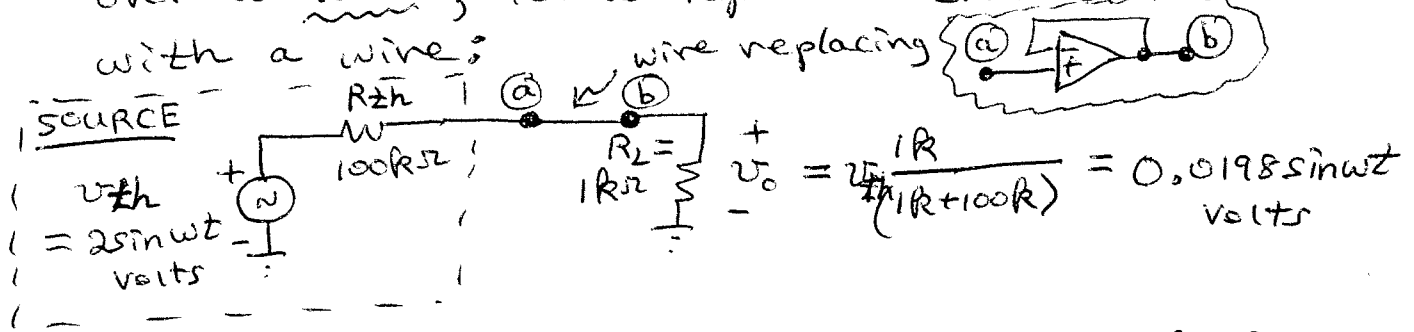 with a wire: wire replacing (a) (b)
SOURCE Rth (a) (b)
100kΩ
vth
= 2sinωt
volts
+
-
RL =
1kΩ
+
v0 = vth 1k/(1k+100k) = 0.0198 sinωt
-
volts